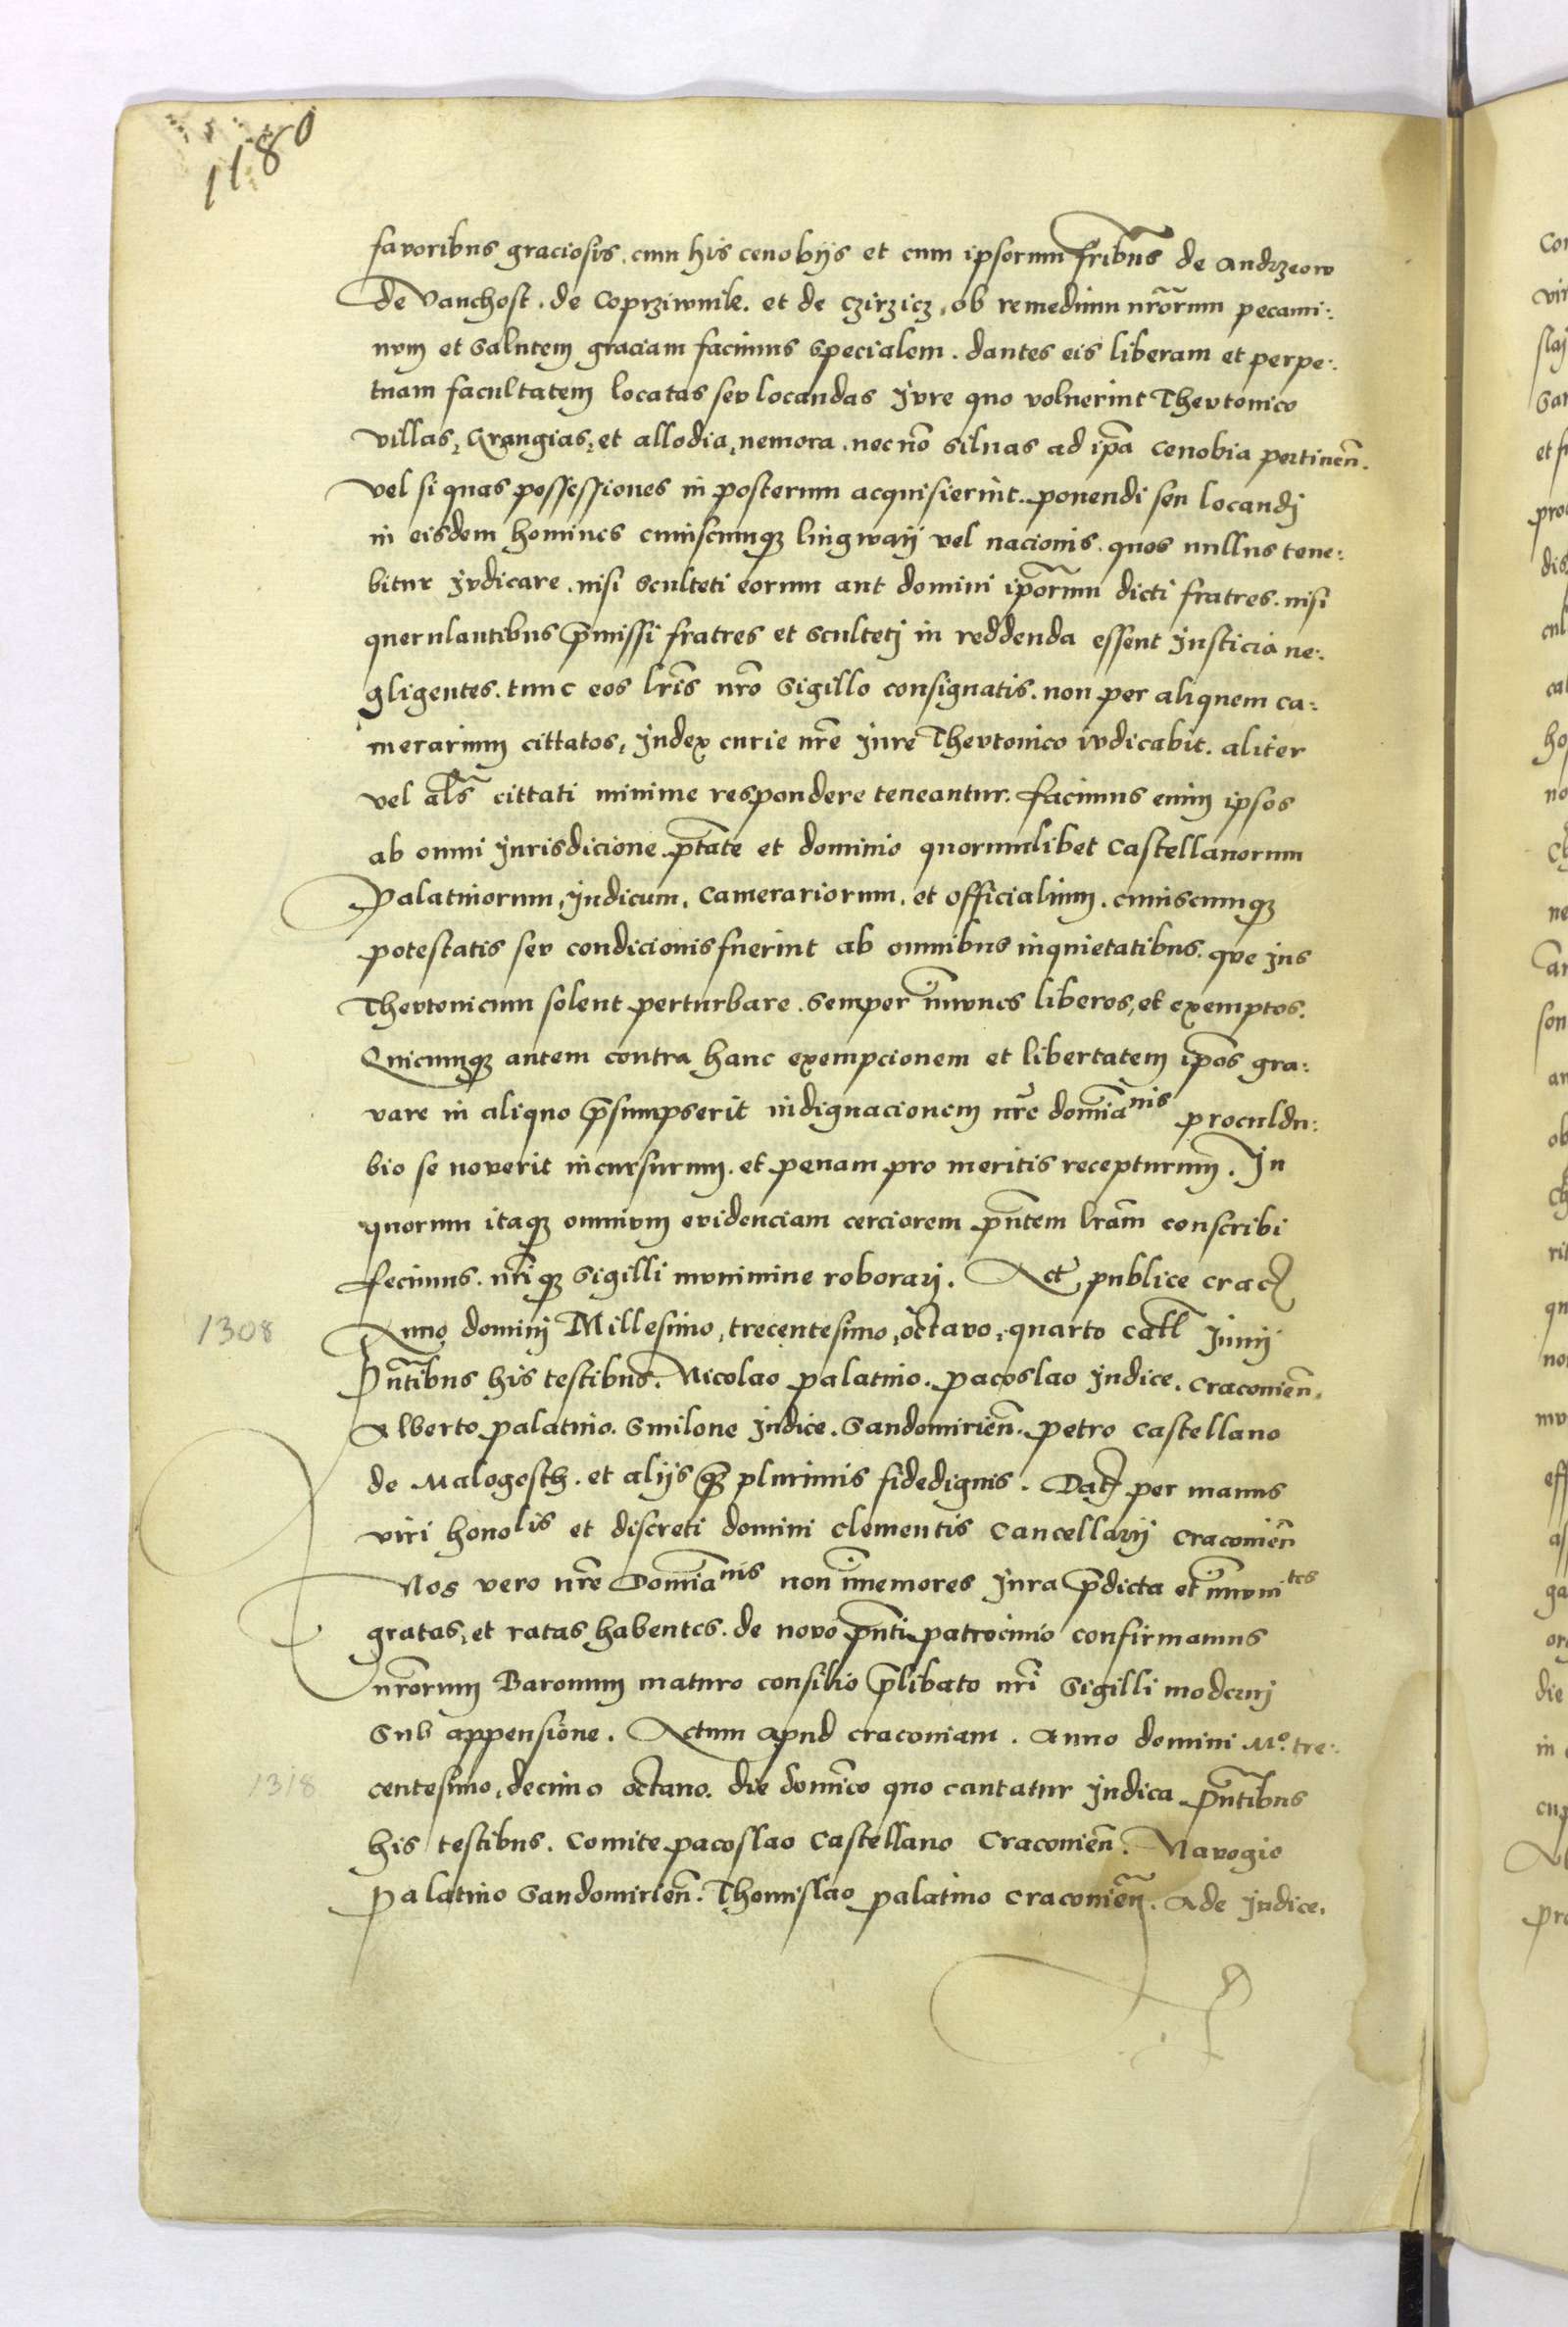 1180
favoribus graciosis. cum his cenobijs et cum ipsorum fr̃ibus de Andrzeow
de Vanchost. de Coprziwnik. et de Czirzicz, ob remedium nr̃orum pecami:
num et salutem graciam facimus specialem. dantes eis liberam et perpe:
tuam facultatem locatas seu locandas Jure quo voluerint Theutonico
villas, Grangias, et allodia, nemora. nec nõ siluas ad ip̃a cenobia pertinen̄.
vel si quas possessiones in posterum acquisierint. ponendi seu locandj
in eisdem homines cuiuscumqꝫ lingwaij vel nacionis. quos nullus tene:
bitur judicare. nisi sculteti eorum aut domini ip̃orum dicti fratres. nisi
querulantibus p̄missi fratres et scultetj in reddenda essent justicia ne:
gligentes. tunc eos lr̃is nr̃o sigillo consignatis. non per aliquem ca:
merarium cittatos, Judex curie nr̃e jure Theutonico iudicabit. aliter
vel al̃s cittati minime respondere teneantur. facimus enim ipsos
ab omni jurisdicione p̃tate et dominio quorumlibet Castellanorum
Palatinorum, Judicum, Camerariorum. et officialium. cuiuscumqꝫ
potestatis seu condicionis fuerint ab omnibus inquietatibus. que jus
Theutonicum solent perturbare. semper im̃unes liberos, et exemptos.
Quicumqꝫ autem contra hanc exempcionem et libertatem ip̃os gra:
vare in aliquo p̄sumpserit indignacionem nr̃e domĩanis proculdu:
bio se noverit incursurum. et penam pro meritis recepturum. In
quorum itaqꝫ omnium evidenciam cerciorem p̃ntem lr̃am conscribi
fecimus. nr̃iqꝫ sigilli munimine roborarj. Act publice crac
1308
Anno dominj Millesimo, trecentesimo, octavo, quarto call̃ Junij
P̃ntibus his testibus. Nicolao palatino. pacoslao Judice. Craconien̄.
Alberto palatino. Smilone Judice. Sandomirien̄. petro castellano
de Malogosth. et alijs qꝫ plurimis fidedignis. Dat per manus
viri honolis et discreti domini Clementis Cancellarij Craconien̄
Nos vero nr̃e Domĩanis non im̃emores jura p̄dicta et im̃unites
gratas, et ratas habentes. de novo p̃nti patrocinio confirmamus
nr̃orum Baronum maturo consilio p̄libato nr̃i sigilli modernj
sub appensione. Actum apud craconiam. Anno domini Mᵒ. tre:
1318
centesimo, decimo octauo. die domĩco quo cantatur Judica p̃ntibus
his testibus. Comite pacoslao Castellano Craconien̄. Navogio
Palatino Sandomirien̄. Thomislao palatino Craconien̄. Ade Judice.